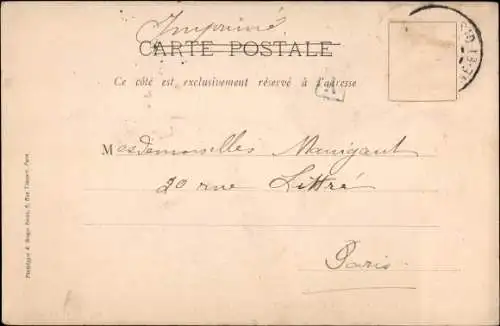 Imprimé
CARTE POSTALE
Ce côté est exclusivement réservé à l'adresse
Mesdemoiselles Manigant
20 rue Littré
Paris